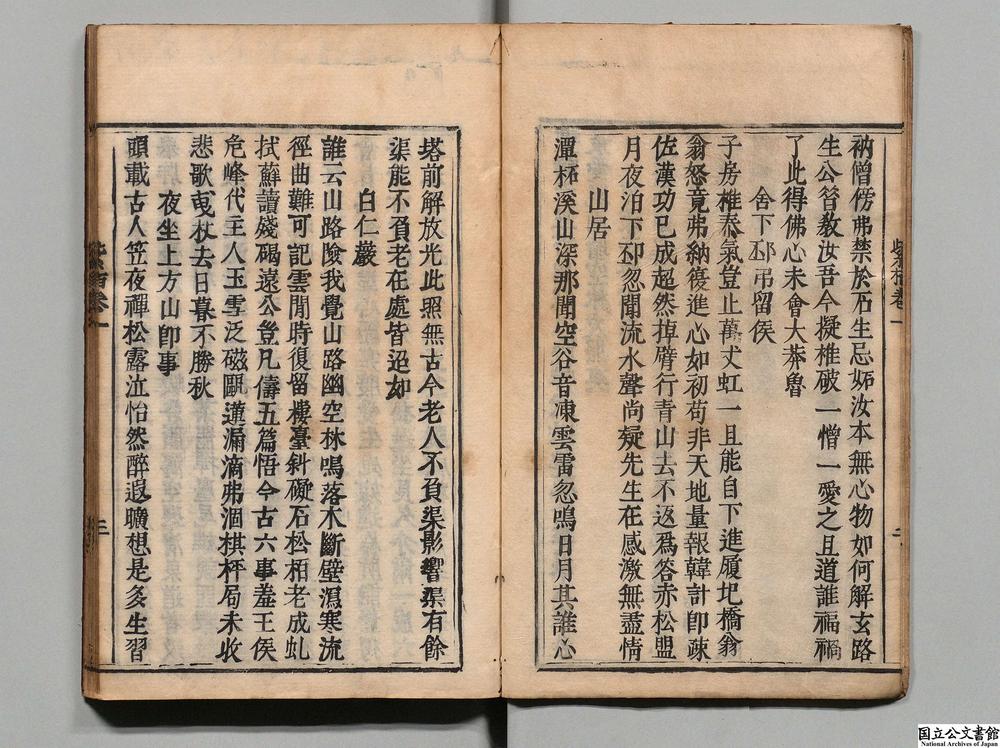 衲僧傍弗禁於石生忌妬汝本無心物如何解玄路
生公咎教汝吾今擬椎破一憎一愛之且道誰福禍
了此得佛心未會大莽魯
舍下邳弔留侯
子房椎秦氣豈止萬丈虹一旦能自下進履圯橋翁
翁怒竟弗納復進心如初苟非天地量報韓計卽疎
佐漢功已成超然掉臂行青山去不返爲答赤松盟
月夜泊下邳忽聞流水聲尚疑先生在感激無盡情
山居
潭杯溪山深那聞空谷音凍雲雷忽鳴日月其誰心
紫柏卷一
二
塔前解放光此照無古今老人不負渠影響渠有餘
渠能不負老在處皆迢如
白仁巖
誰云山路險我覺山路幽空林鳴落木斷壁瀉寒流
徑曲難可記雲閒時復留樓臺斜礙石松栢老成虬
拭蘇讀殘碣遠公豈凡儔五篇悟今古六事羞王侯
危峰代主人玉雪泛磁甌蓮漏滴弗涸棋枰局未收
悲歌曳杖去日暮不勝秋
夜坐上方山卽事
頭戴古人笠夜禪松露泣怡然醉遐曠想是多生習
卷一
三
國立公文書館
National Archives of Japan